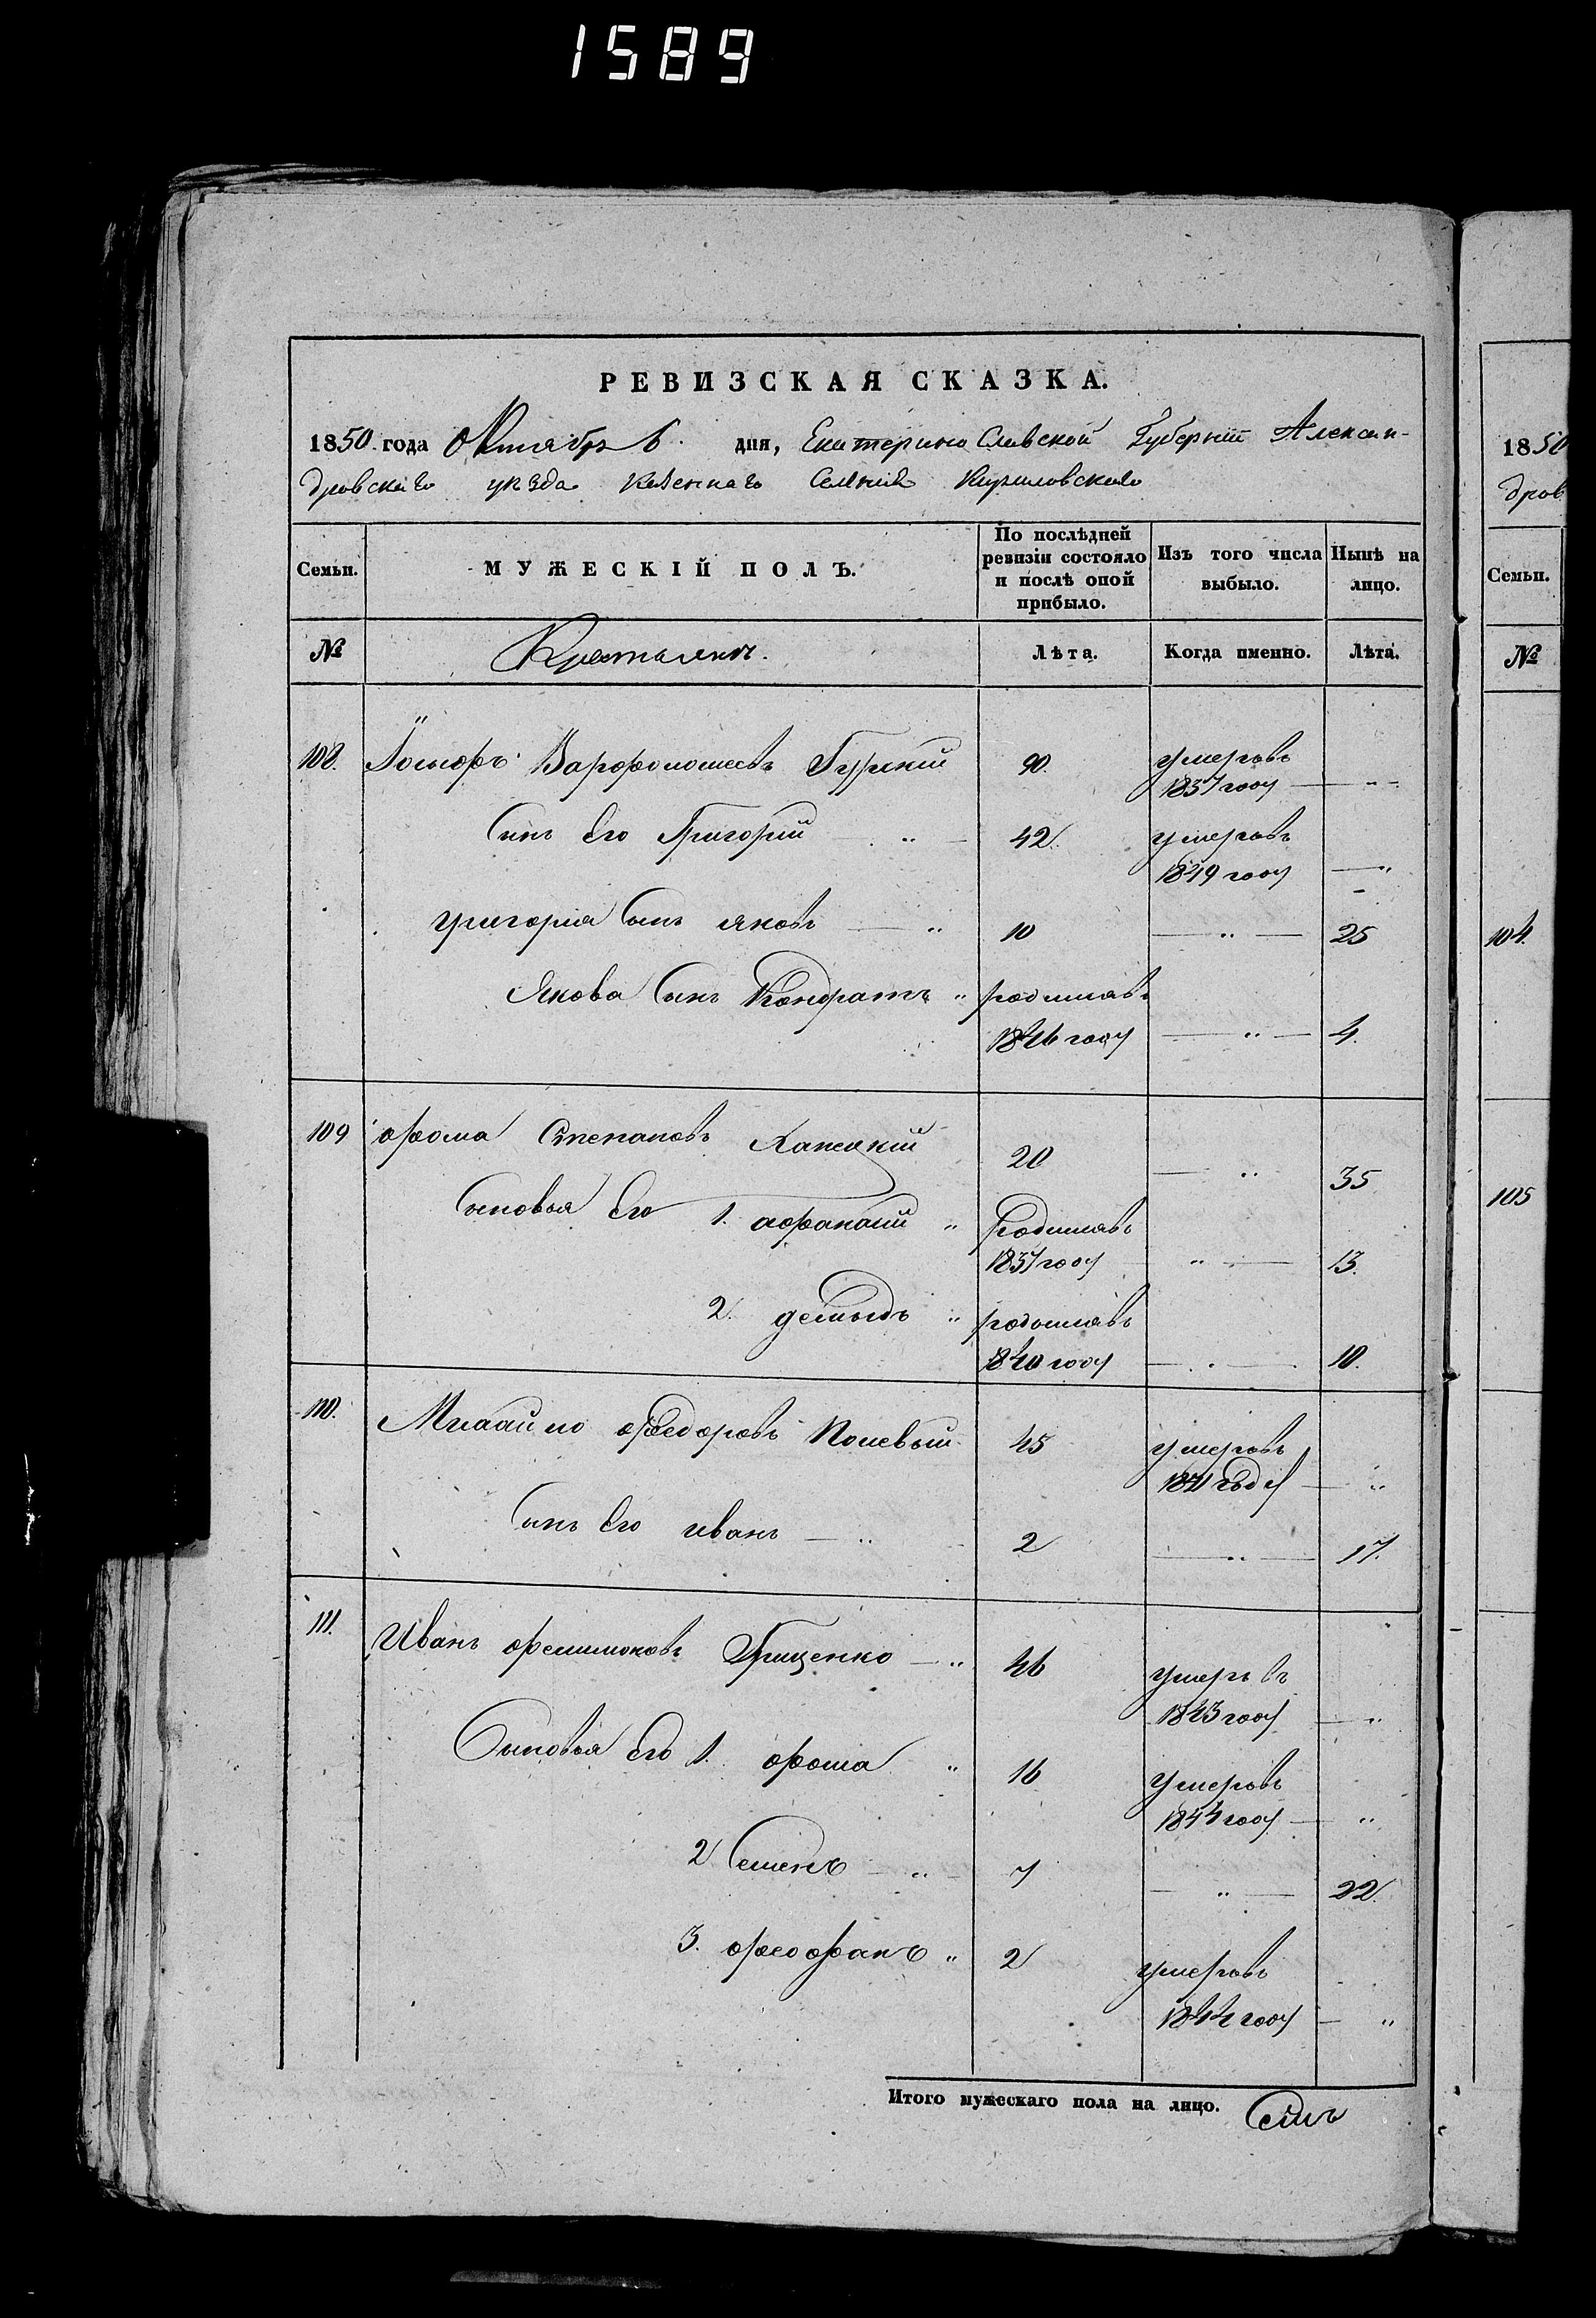 1589
РЕВИЗСКАЯ СКАЗКА.
1850 года Октября 6. дня, Екатеринославской Губерніи Алексан-
дровскаго уѣзда Казеннаго Селенія Кириловскаго
Семьи.
МУЖЕСКІЙ ПОЛЪ.
По послѣдней ревизіи состояло и послѣ оной прибыло.
Изъ того числа выбыло.
Нынѣ на лицо.
№
Крестьяне.
Лѣта.
Когда именно.
Лѣта.
108. Варфоломеевъ 90. умеръ въ
1837 году
Сынъ Его Григорій 42. умеръ въ
1849 году
Григорія Сынъ Яковъ 10 25
Якова Сынъ Кондратъ родился въ
1846 году 4.
109 Фома Степановъ 20 35
Сыновья Его 1. Афанасій родился въ
1837 году 13.
2. Демидъ родился въ
1840 году 10.
110. Михайло Федоровъ Полевый 45 умеръ въ
году
Сынъ Его Иванъ 2 17.
111. Иванъ Филимоновъ Грищенко 46 умеръ въ
1843 году
Сыновья Его 1. Фома 16 умеръ въ
1844 году
2 Семенъ 7 22.
3. Феофанъ 2 умеръ въ
1844 году
Итого мужескаго пола на лицо. Семь
1850
дров
Семьи.
№
104.
105